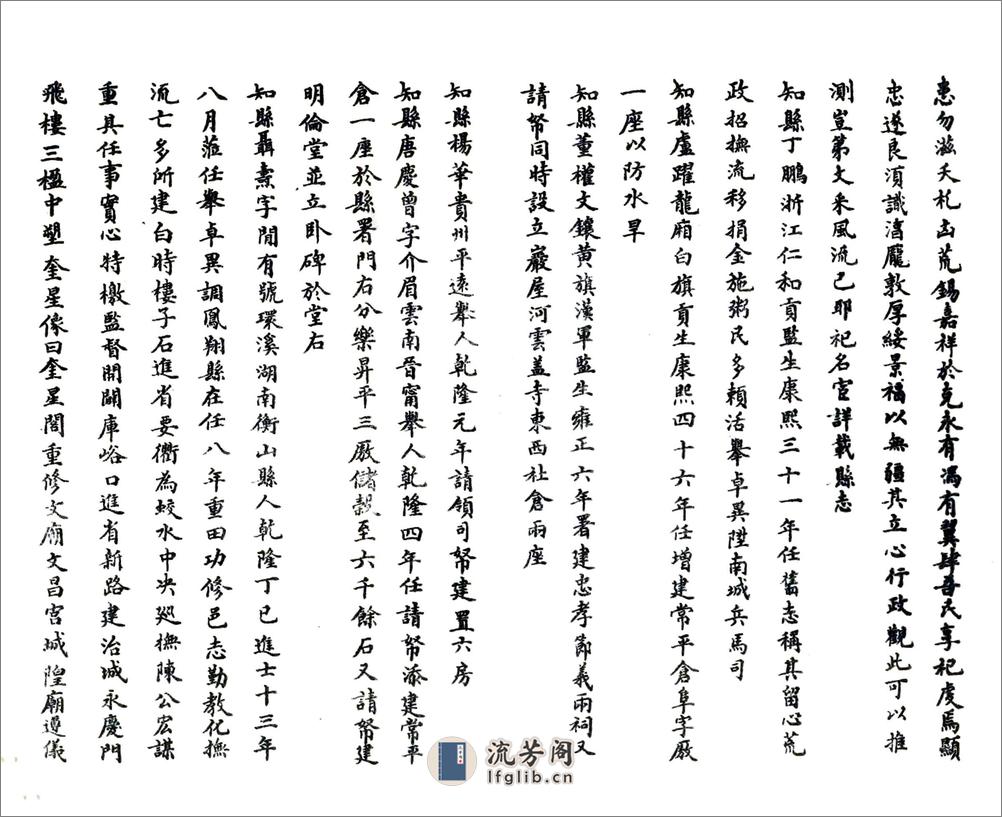 患勿滋夭札凶荒錫嘉祥於克永有馮有翼肆吾民享祀虔焉顯
忠遂良須識瀉龐敦厚綏景福以無疆其立心行政觀此可以推
測豈第文采風流已耶祀名宦詳載縣志
知縣丁鵬浙江仁和貢監生康熙三十一年任舊志稱其留心荒
政招撫流移捐金施粥民多賴活舉卓異陞南城兵馬司
知縣盧躍龍廂白旗貢生康熙四十六年任增建常平倉阜字廒
一座以防水旱
知縣董權文鑲黃旗漢軍監生雍正六年署建忠孝節義兩祠又
請帑同時設立巖屋河雲盖寺東西社倉兩座
知縣楊華貴州平遠舉人乾隆元年請領司帑建置六房
知縣唐慶曾字介眉雲南晉甯舉人乾隆四年任請帑添建常平
倉一座於縣署門右分樂昇平三廒儲穀至六千餘石又請帑建
明倫堂並立卧碑於堂右
知縣聶燾字閒有號環溪湖南衡山縣人乾隆丁巳進士十三年
八月蒞任舉卓異調鳳翔縣在任八年重田功修邑志勤教化撫
流亡多所建白時棲子石進省要衢為蛟水中決廵撫陳公宏謀
重其任事實心特檄監督開闢庫峪口進省新路建治城永慶門
飛樓三楹中塑奎星像曰奎星閣重修文廟文昌宮城隍廟遵儀
流芳阁
lfglib.cn